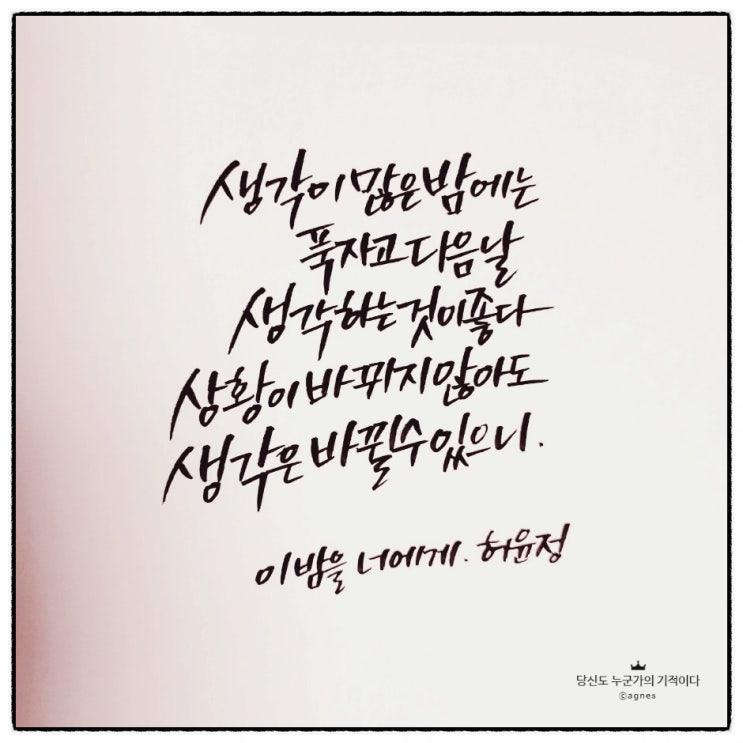 생각이 많은 밤에는
푹 자고 다음날
생각하는 것이 좋다
상황이 바뀌지 않아도
생각은 바뀔 수 있으니.
이 밤을 너에게. 허윤정
당신도 누군가의 기적이다
©agnes